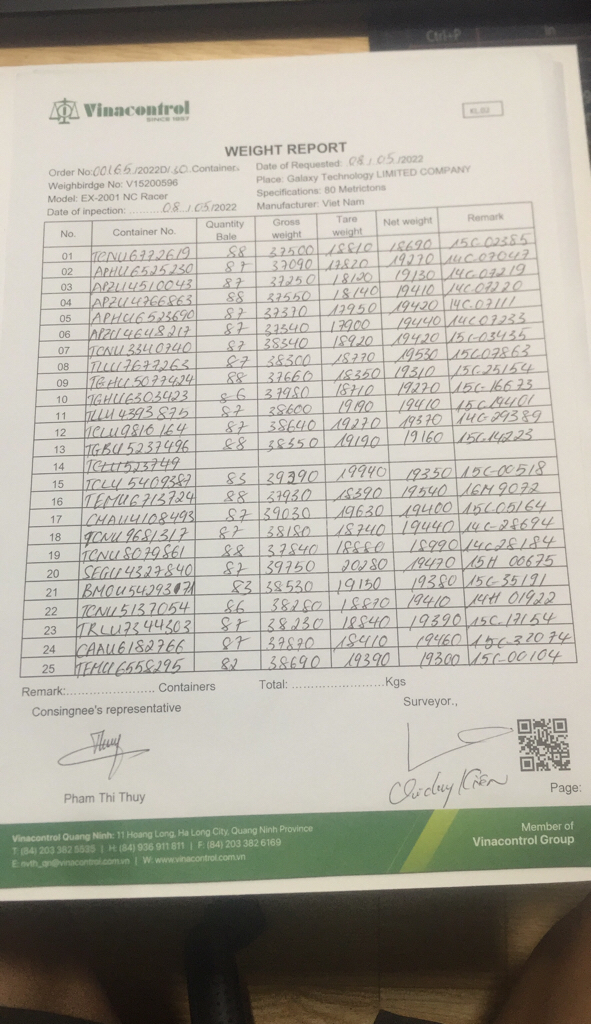 Ctrl+P
Vinacontrol
SINCE 1957
WEIGHT REPORT
Order No: 00165/2022D/30 Container. Date of Requested: 08/05/2022
Weighbirdge No: V15200596 Place: Galaxy Technology LIMITED COMPANY
Model: EX-2001 NC Racer Specifications: 80 Metrictons
Date of inpection: ........... 08/05/2022 Manufacturer: Viet Nam
No. Container No. Quantity Bale Gross weight Tare weight Net weight Remark
01 TCNU6772619 88 37500 18810 18690 15C-02385
02 APHU6525230 87 37090 17820 19270 14C-07047
03 APZU4510043 87 37250 18120 19130 14C-07219
04 APZU4766863 88 37550 18140 19410 14C-07220
05 APHU6523690 87 37370 17950 19420 14C-07111
06 APZU4648217 87 37340 17900 19440 14C-07233
07 TCNU3340740 87 38340 18920 19420 15C-03435
08 TLLU7677263 87 38300 18770 19530 15C07863
09 TGHU5077424 88 37660 18350 19310 15C-25154
10 TGHU6303423 86 37980 18710 19270 15C-16673
11 TLLU4393875 87 38600 19190 19410 15C-19401
12 TCLU9816164 87 38640 19270 19370 14C-29389
13 TGBU5237496 88 38350 19190 19160 15C-14223
14
15 TCLU5409387 83 39290 19940 19350 15C-00518
16 TEMU6713724 88 37930 18390 19540 16M 9072
17 CMAU4108493 87 39030 19630 19400 15C-05164
18 TCNU9681317 87 38180 18740 19440 14C-28694
19 TCNU8079861 88 37840 18850 18990 14C28184
20 SEGU4327840 87 39750 20280 19470 15H 00675
21 BMOU5429307 83 38530 19150 19380 15C-35191
22 TCNU5137054 86 38280 18870 19410 14H 01922
23 TRLU7344303 87 38230 18840 19390 15C-17154
24 CAAU6182766 87 37870 18410 19460 15C-32074
25 TEMU6558295 82 38690 19390 19300 15C-00104
Remark:....................... Containers Total: ........................Kgs
Consingnee's representative Surveyor.,
Thuy
Pham Thi Thuy
Page:
Vinacontrol Quang Ninh: 11 Hoang Long, Ha Long City, Quang Ninh Province
T: (84) 203 382 5535 | H: (84) 936 911 811 | F: (84) 203 382 6169
E: nvth_qn@vinacontrol.com.vn | W: www.vinacontrol.com.vn
Member of
Vinacontrol Group